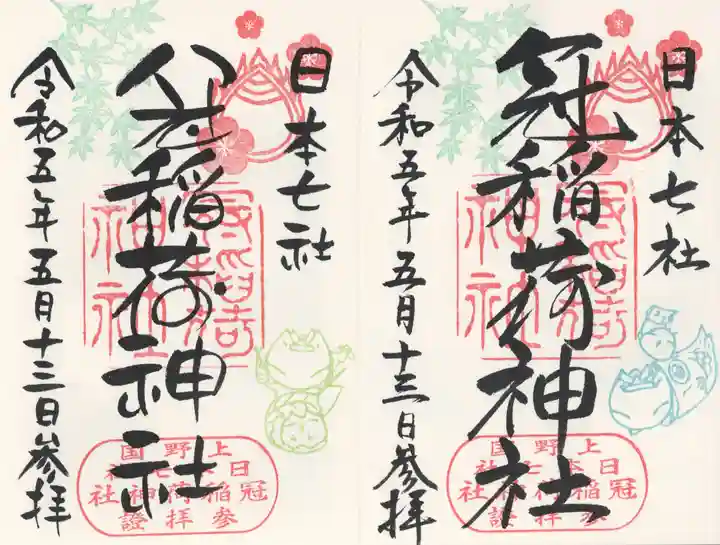 日本七社
冠稲荷神社
令和五年五月十三日参拝
上野国
日本七社
冠稲荷神社
参拝證
日本七社
冠稲荷神社
令和五年五月十三日参拝
上野国
日本七社
冠稲荷神社
参拝證